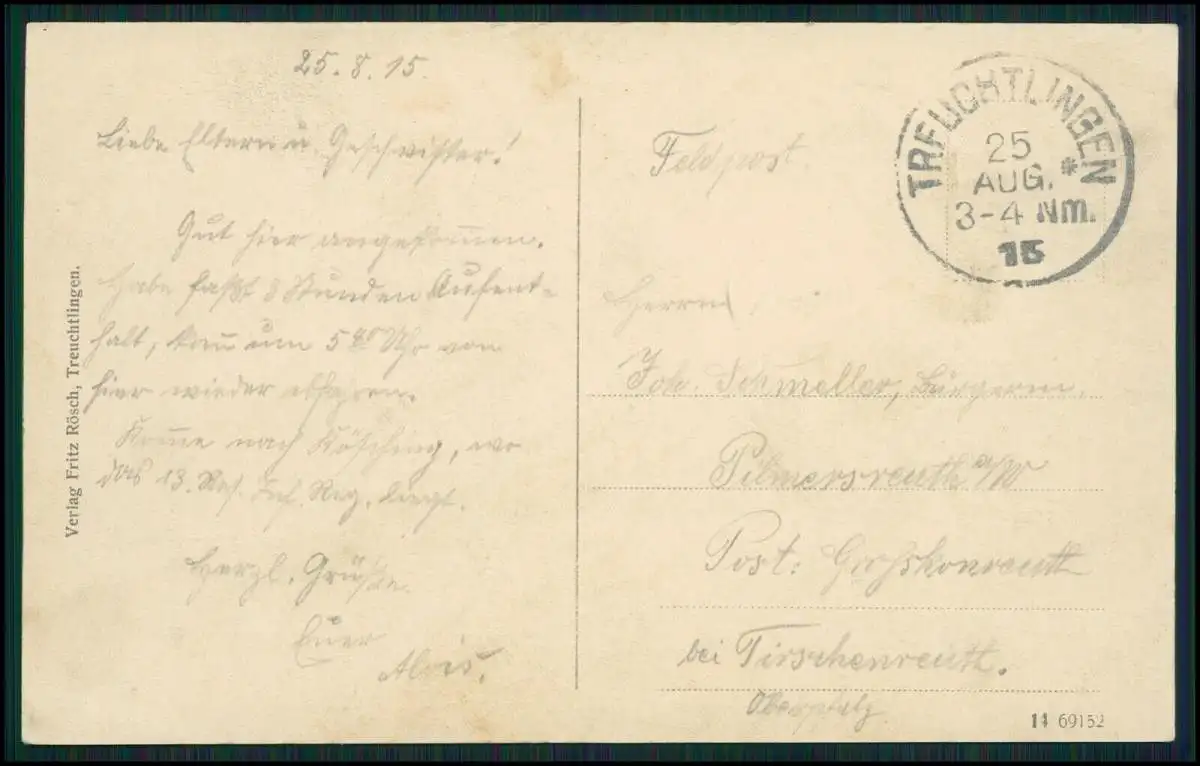 25.8.15.
Liebe Eltern u. Geschwister!
Gut hier angekommen.
Habe faßt 8 Stunden Aufent-
halt, kann um 5 Uhr von
hier wieder abfahren.
Komme nach Kösching, wo
das 13. Res. Inf. Reg. liegt.
Herzl. Grüße
Euer
Alois.
Verlag Fritz Rösch, Treuchtlingen.
Feldpost
TREUCHTLINGEN
25
AUG. *
3-4 Nm.
15
Herrn
Joh. Schmeller, Bürgerm.
Pilmersreuth a/W
Post: Großkonreuth
bei Tirschenreuth.
Oberpfalz
11 69152